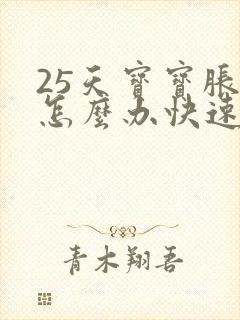 25天寶寶脹
怎麼办快速
青木翔吾